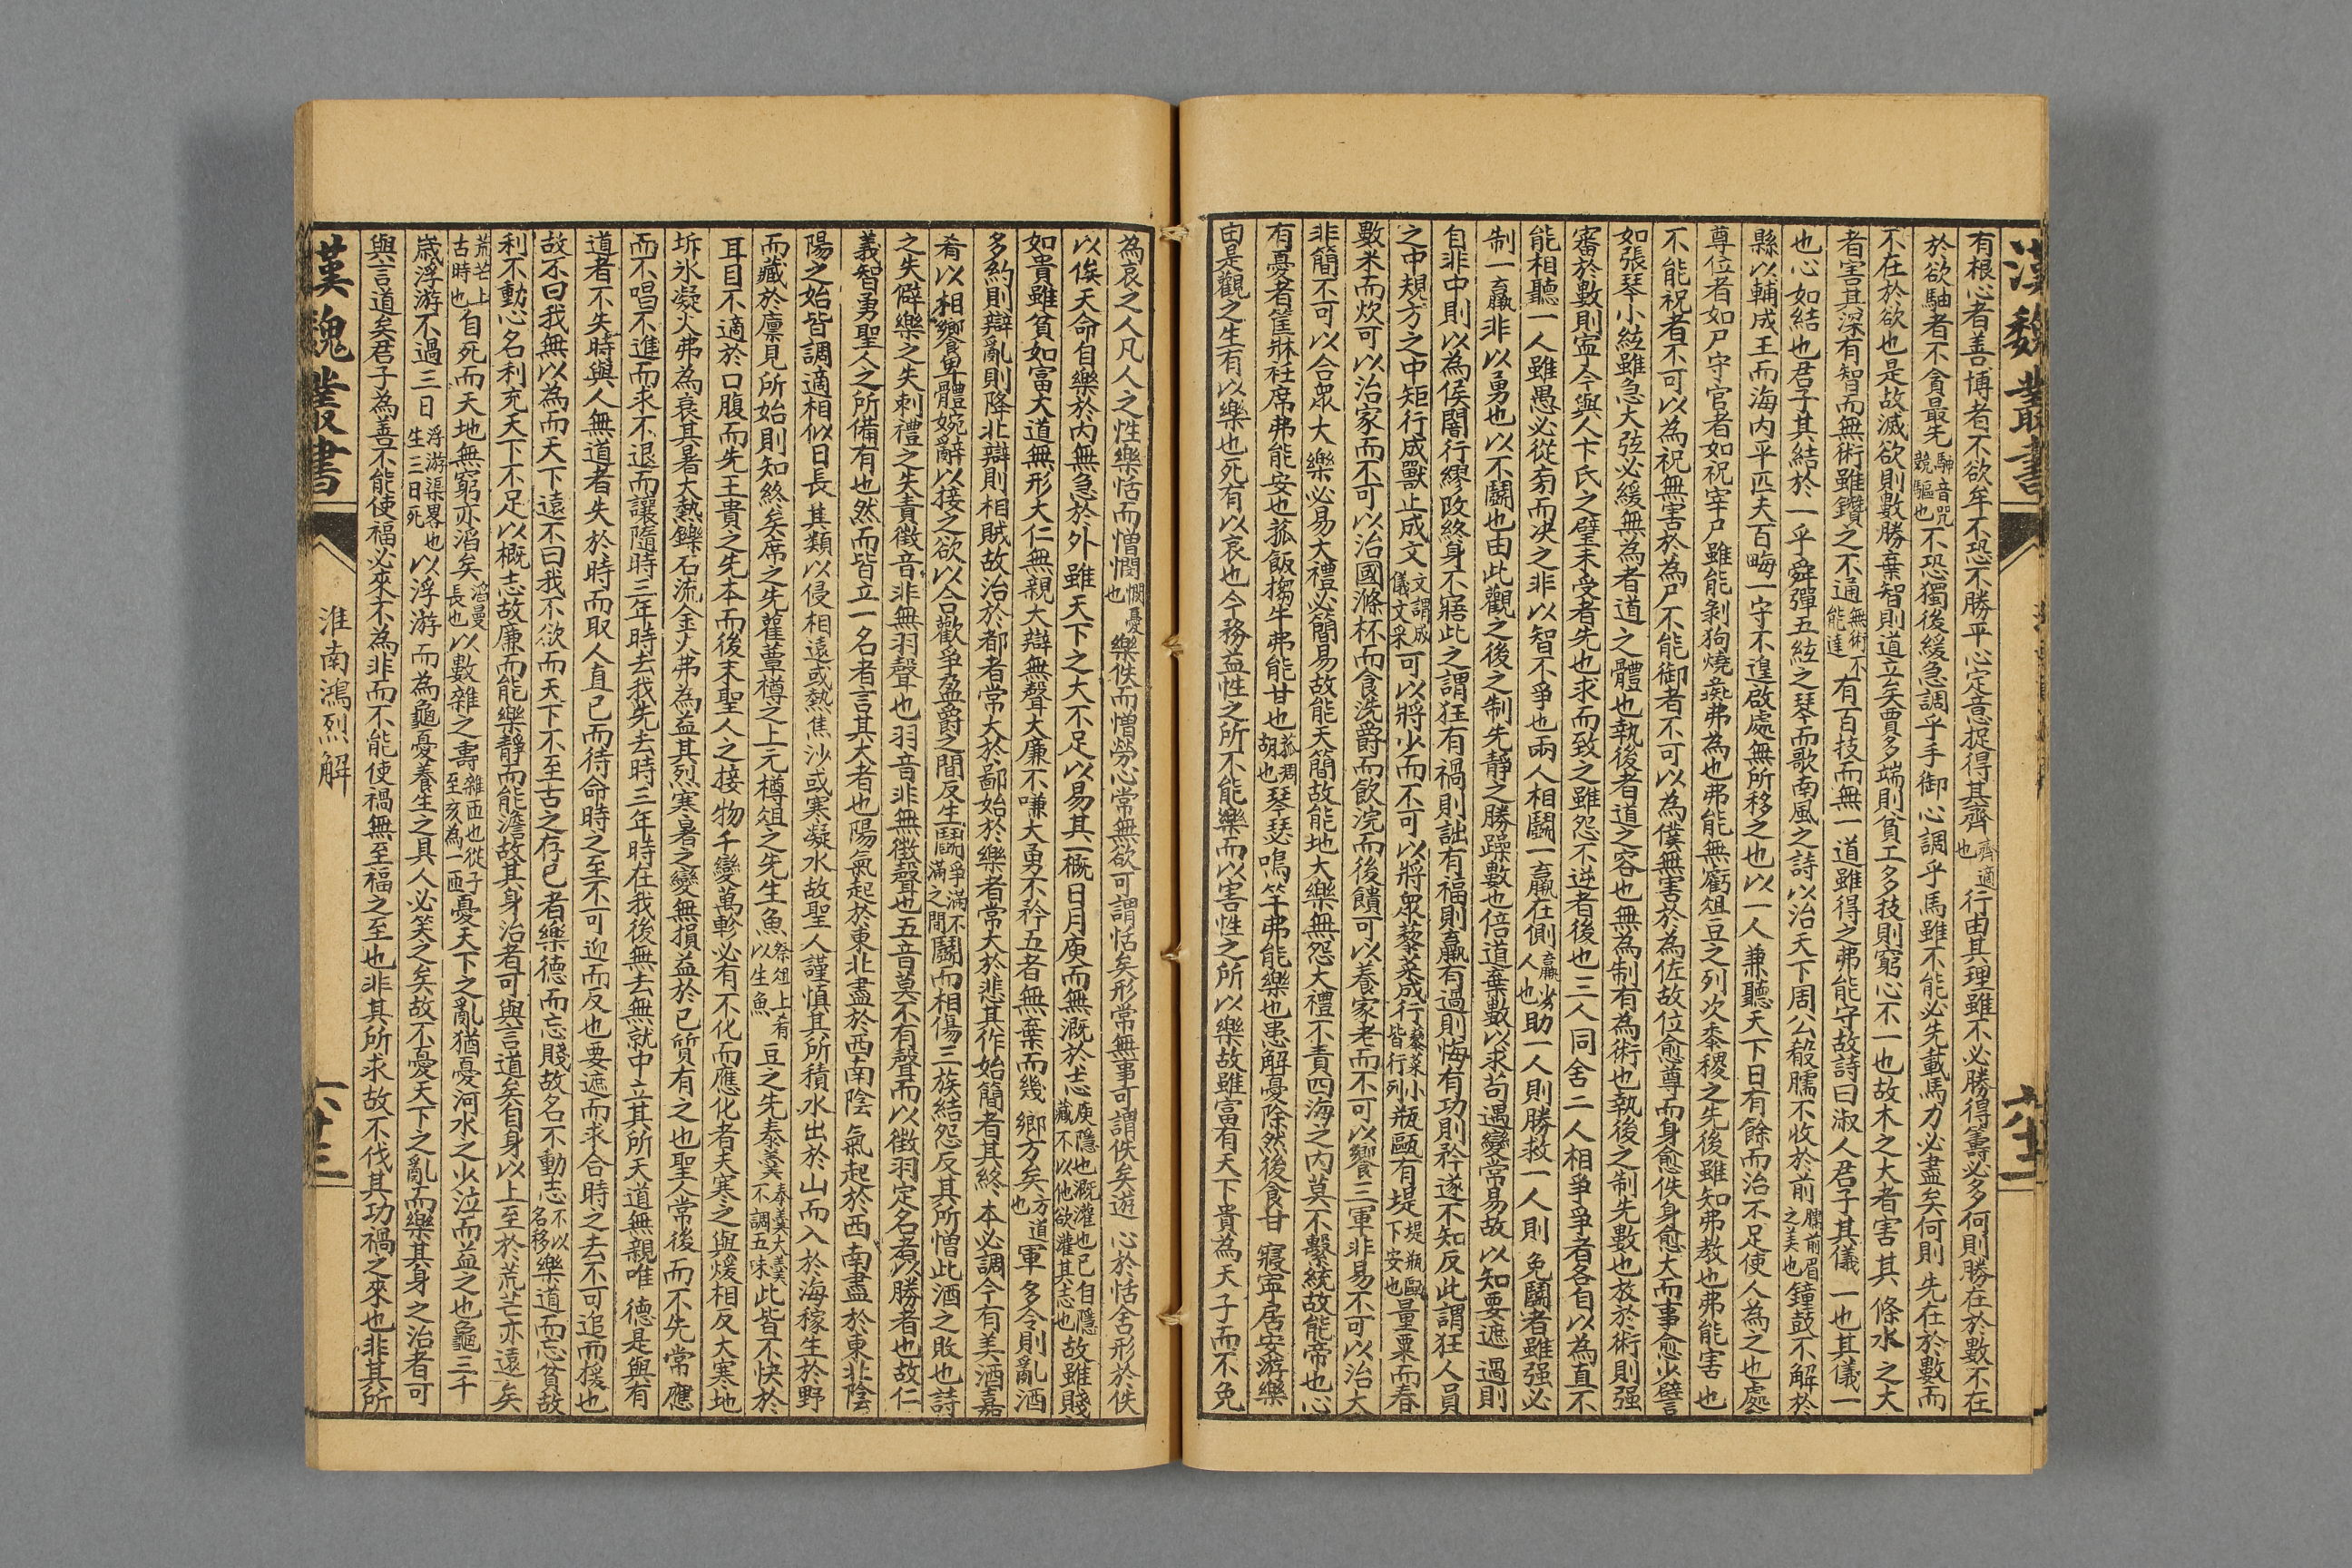 漢魏叢書
六十二
有根心者善博者不欲牟不恐不勝平心定意捉得其齊齊適也行由其理雖不必勝得籌必多何則勝在於數不在
於欲駎者不貪最先駎音咒競驅也不恐獨後緩急調乎手御心調乎馬雖不能必先載馬力必盡矣何則先在於數而
不在於欲也是故滅欲則數勝棄智則道立矣賈多端則貧工多技則窮心不一也故木之大者害其條水之大
者害其深有智而無術雖鑽之不通無術不能達有百技而無一道雖得之弗能守故詩曰淑人君子其儀一也其儀一
也心如結也君子其結於一乎舜彈五絃之琴而歌南風之詩以治天下周公殽臑不收於前臑前眉之美也鐘鼓不解於
縣以輔成王而海內平匹夫百畮一守不遑啟處無所移之也以一人兼聽天下日有餘而治不足使人為之也處
尊位者如尸守官者如祝宰尸雖能剝狗燒彘弗為也弗能無虧俎豆之列次黍稷之先後雖知弗教也弗能害也
不能祝者不可以為祝無害於為尸不能御者不可以為僕無害於為佐故位愈尊而身愈佚身愈大而事愈少譬
如張琴小絃雖急大弦必緩無為者道之體也執後者道之容也無為制有為術也執後之制先數也放於術則强
審於數則寍今與人卞氏之璧未受者先也求而致之雖怨不逆者後也三人同舍二人相爭爭者各自以為直不
能相聽一人雖愚必從旁而決之非以智不爭也兩人相鬭一羸在側羸劣人也助一人則勝救一人則免鬭者雖强必
制一羸非以勇也以不鬭也由此觀之後之制先靜之勝躁數也倍道棄數以求苟遇變常易故以知要遮過則
自非中則以為侯闇行繆改終身不寤此之謂狂有禍則詘有福則羸有過則悔有功則矜遂不知反此謂狂人員
之中規方之中矩行成獸止成文文謂成儀文采可以將少而不可以將眾藜菜成行藜菜小皆行列瓶甌有堤堤瓶甌下安也量粟而舂
數米而炊可以治家而不可以治國滌杯而食洗爵而飲浣而後饋可以養家老而不可以饗三軍非易不可以治大
非簡不可以合眾大樂必易大禮必簡易故能天簡故能地大樂無怨大禮不責四海之內莫不繫統故能帝也心
有憂者筐牀衽席弗能安也菰飯犓牛弗能甘也菰凋胡也琴瑟鳴竽弗能樂也患解憂除然後食甘寢寍居安游樂
由是觀之生有以樂也死有以哀也今務益性之所不能樂而以害性之所以樂故雖富有天下貴為天子而不免
為哀之人凡人之性樂恬而憎憫憫憂也樂佚而憎勞心常無欲可謂恬矣形常無事可謂佚矣遊心於恬舍形於佚
以俟天命自樂於內無急於外雖天下之大不足以易其一概日月庾而無溉於志庾隱也溉灌也已自隱藏不以他欲灌其志也故雖賤
如貴雖貧如富大道無形大仁無親大辯無聲大廉不嗛大勇不矜五者無棄而幾鄉方矣方道也軍多令則亂酒
多約則辯亂則降北辯則相賊故治於都者常大於鄙始於樂者常大於悲其作始簡者其終本必調今有美酒嘉
肴以相饗卑體婉辭以接之欲以合歡爭盈爵之間反生鬭爭滿不滿之間鬭而相傷三族結怨反其所憎此酒之敗也詩
之失僻樂之失刺禮之失責徵音非無羽聲也羽音非無徵聲也五音莫不有聲而以徵羽定名者以勝者也故仁
義智勇聖人之所備有也然而皆立一名者言其大者也陽氣起於東北盡於西南陰氣起於西南盡於東北陰
陽之始皆調適相似日長其類以侵相遠或熱焦沙或寒凝水故聖人謹慎其所積水出於山而入於海稼生於野
而藏於廩見所始則知終矣席之先雚蕈樽之上元樽俎之先生魚祭俎上肴以生魚豆之先泰羹泰羹大羹不調五味此皆不快於
耳目不適於口腹而先王貴之先本而後末聖人之接物千變萬軫必有不化而應化者夫寒之與煖相反大寒地
坼氷凝火弗為衰其暑大熱鑠石流金火弗為益其烈寒暑之變無損益於己質有之也聖人常後而不先常應
而不唱不進而求不退而讓隨時三年時去我先去時三年時在我後無去無就中立其所天道無親唯德是與有
道者不失時與人無道者失於時而取人直己而待命時之至不可迎而反也要遮而求合時之去不可追而援也
故不曰我無以為而天下遠不曰我不欲而天下不至古之存己者樂德而忘賤故名不動志不以名移樂道而忘貧故
利不動心名利充天下不足以概志故廉而能樂靜而能澹故其身治者可與言道矣自身以上至於荒芒亦遠矣
荒芒上古時也自死而天地無窮亦滔矣滔曼長也以數雜之壽雜匝也從子至亥為一匝憂天下之亂猶憂河水之少泣而益之也龜三千
歲浮游不過三日浮游渠畧也生三日死以浮游而為龜憂養生之具人必笑之矣故不憂天下之亂而樂其身之治者可
與言道矣君子為善不能使福必來不為非而不能使禍無至福之至也非其所求故不伐其功禍之來也非其所
漢魏叢書
淮南鴻烈解
六十三